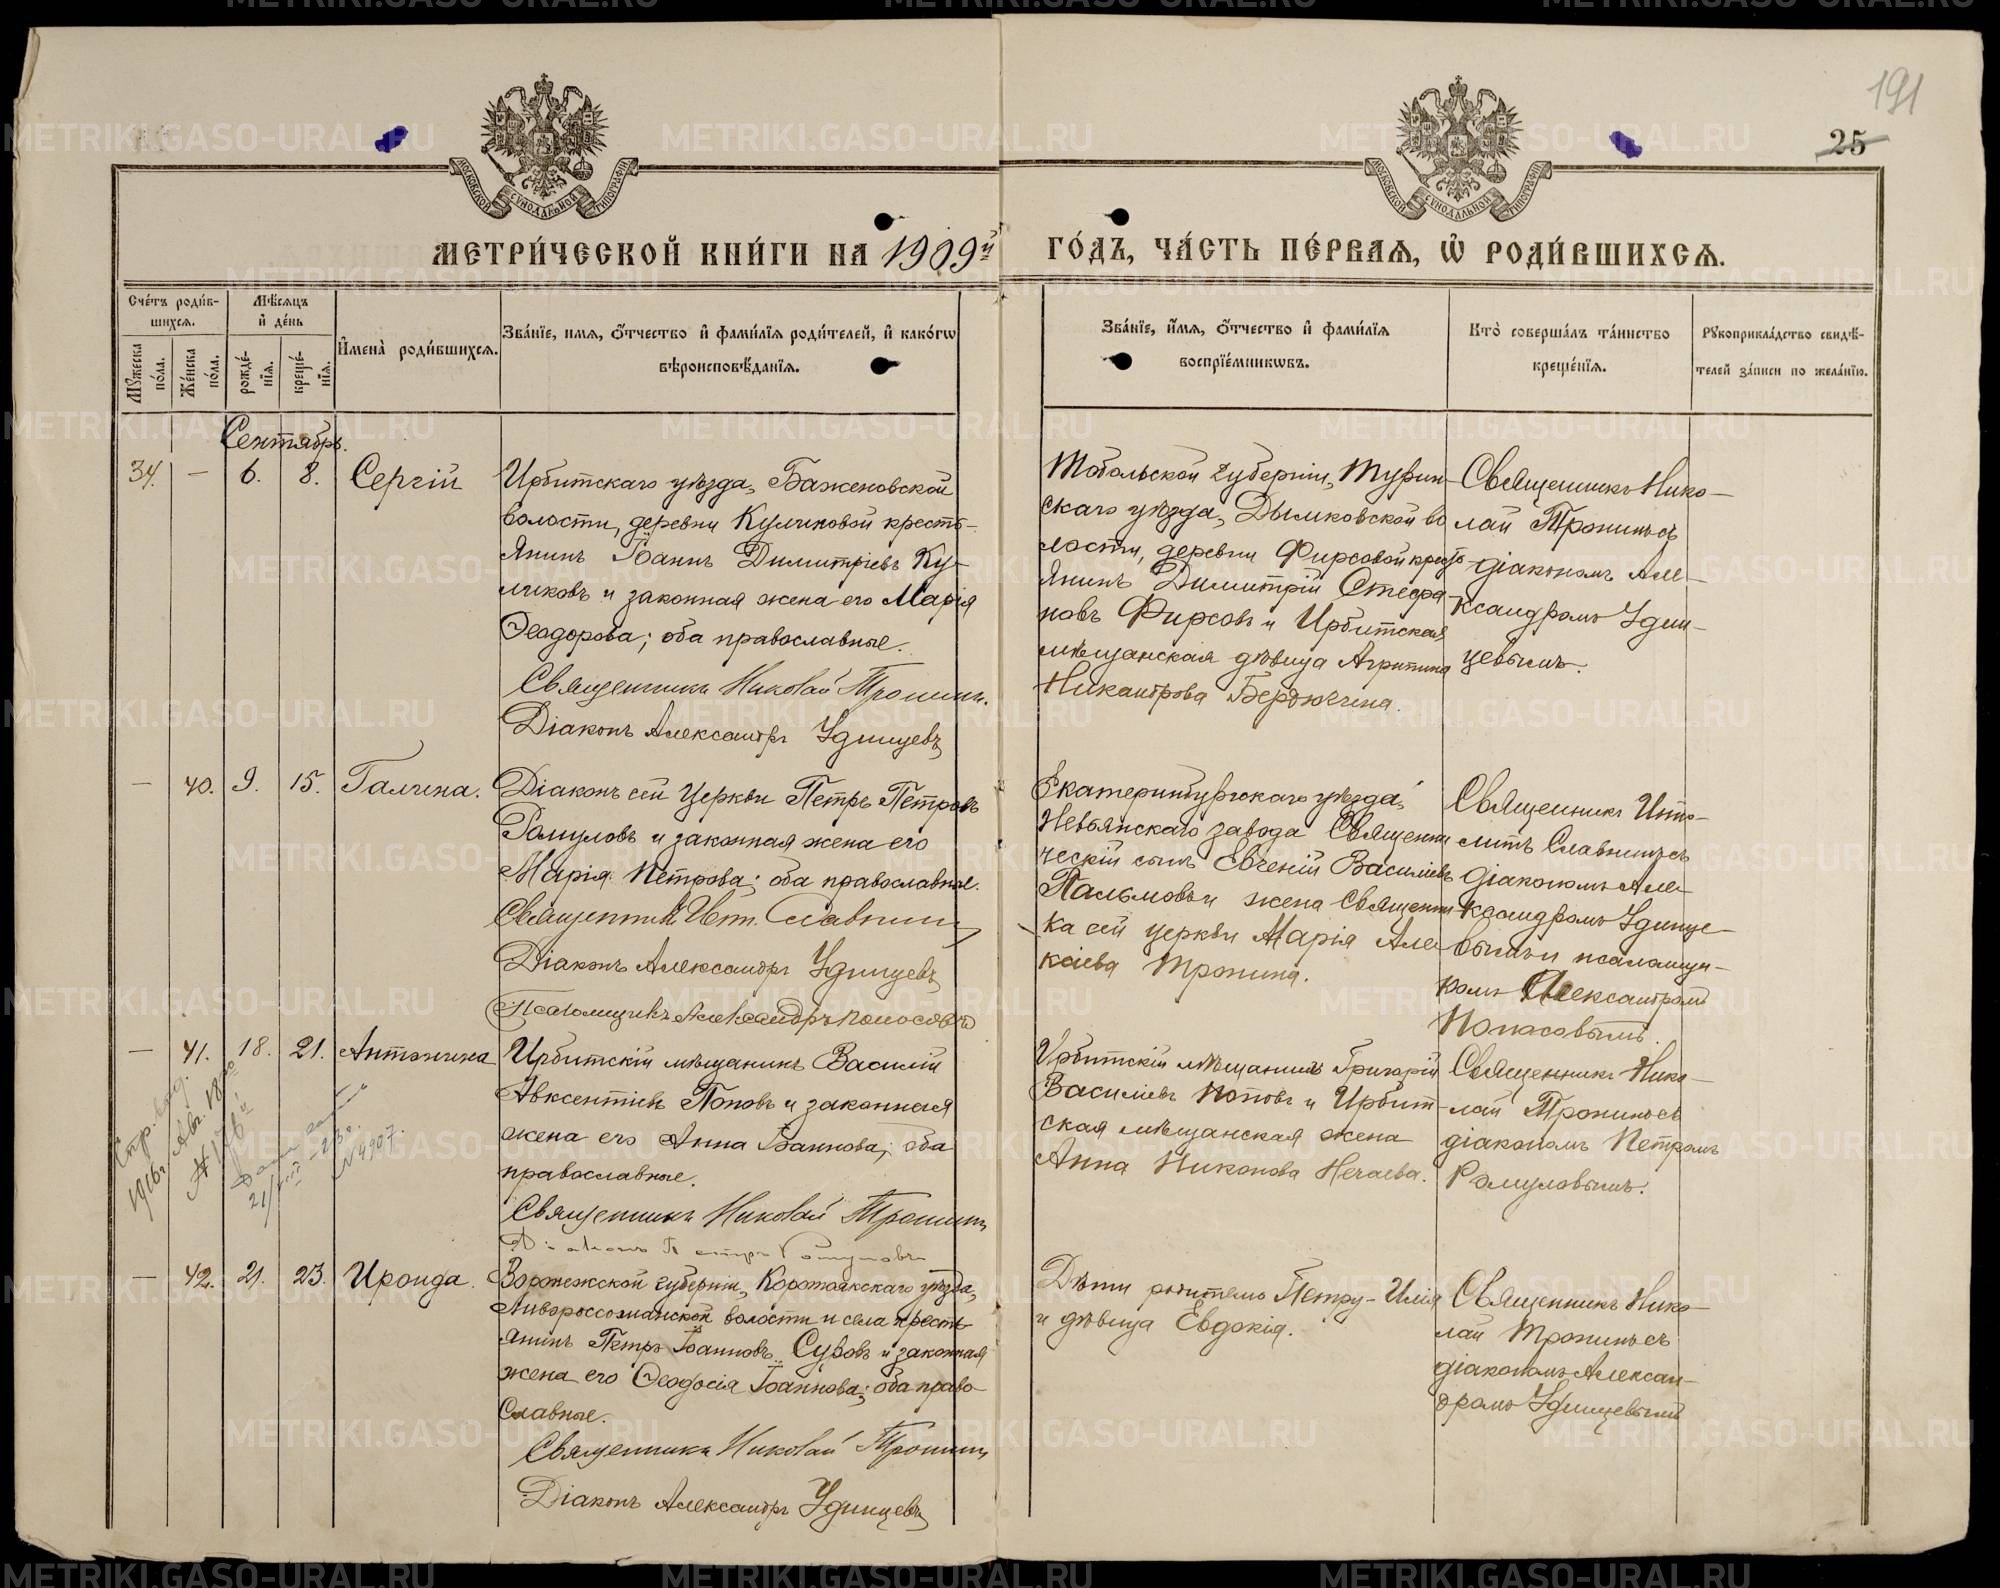 191
25
МОСКОВСКОЙ СѴНОДАЛЬНОЙ ТИПОГРАФІИ
МОСКОВСКОЙ СѴНОДАЛЬНОЙ ТИПОГРАФІИ
МЕТРИ́ЧЕСКОЙ КНИ́ГИ НА 1909й ГО́ДЪ, ЧА́СТЬ ПЕ́РВАЯ, Ѽ РОДИ́ВШИХСЯ.
Сче́тъ роди́в-
шихся.
Мѣ́сяцъ
и҆ де́нь
Му́жеска по́ла.
Же́нска по́ла.
рожде́-
нія.
креще́-
нія.
И҆мена̀ роди́вшихся.
Зва́нїе, имя, ѻ҆́тчество и҆ фами́лїя роди́телей, и҆ како́гѡ
вѣроисповѣ́данїя.
Зва́нїе, и҆́мя, ѻ҆́тчество и҆ фами́лїя
воспрїе́мникѡвъ.
Кто̀ соверша́лъ та́инство
креще́нїя.
Рꙋкоприкла́дство свидѣ́-
телей за́писи по жела́нїю.
Сентябрь.
34. — 6. 8. Сергій
Ирбитскаго уѣзда, Баженовской
волости, деревни Куликовой кресть-
янинъ Іоаннъ Димитріевъ Ку-
ликовъ и законная жена его Марія
Ѳеодорова; оба православные.
Священникъ Николай Тронинъ.
Діаконъ Александръ Удинцевъ
Тобольской губерніи, Турин-
скаго уѣзда, Дымковской во
лости, деревни Фирсовой кресть
янинъ Димитрій Стефа-
новъ Фирсовъ и Ирбитская
мѣщанская дѣвица Агрипина
Никандрова Бердюгина.
Священникъ Нико-
лай Тронинъ съ
діакономъ Але-
ксандромъ Удин-
цевымъ.
— 40. 9. 15. Галина.
Діаконъ сей церкви Петръ Петровъ
Ромуловъ и законная жена его
Марія Петрова; оба православные.
Священникъ Ипп. Славнинъ
Діаконъ Александръ Удинцевъ
Псаломщикъ Александръ Попосовъ
Екатеринбургскаго уѣзда,
Невьянскаго завода Священни
ческій сынъ Евгеній Василіевъ
Пальмовъ и жена Священни-
ка сей церкви Марія Але-
ксіева Тронина.
Священникъ Иппо-
литъ Славнинъ съ
діакономъ Але-
ксандромъ Удинце-
вымъ и псаломщи-
комъ Александромъ
Попосовымъ.
— 41. 18. 21. Антонина
Ирбитскій мѣщанинъ Василій
Авксентіевъ Поповъ и законная
жена его Анна Іоаннова; оба
православные.
Священникъ Николай Тронинъ
Діаконъ Петръ Ромуловъ
Ирбитскій мѣщанинъ Григорій
Василіевъ Поповъ и Ирбит-
ская мѣщанская жена
Анна Никонова Нечаева.
Священникъ Нико-
лай Тронинъ съ
діакономъ Петромъ
Ромуловымъ.
1916г. Авг. 18
21/VIII
N 4907.
— 42. 21. 23. Ираида.
Воронежской губерніи, Коротоякскаго уѣзда,
волости и села кресть-
янинъ Петръ Іоанновъ Суровъ и законная
жена его Ѳеодосія Іоаннова; оба право-
славные.
Священникъ Николай Тронинъ
Діаконъ Александръ Удинцевъ
Дѣти родителю Петру - Илія
и дѣвица Евдокія.
Священникъ Нико-
лай Тронинъ съ
діакономъ Алексан-
дромъ Удинцевымъ
METRIKI.GASO-URAL.RU